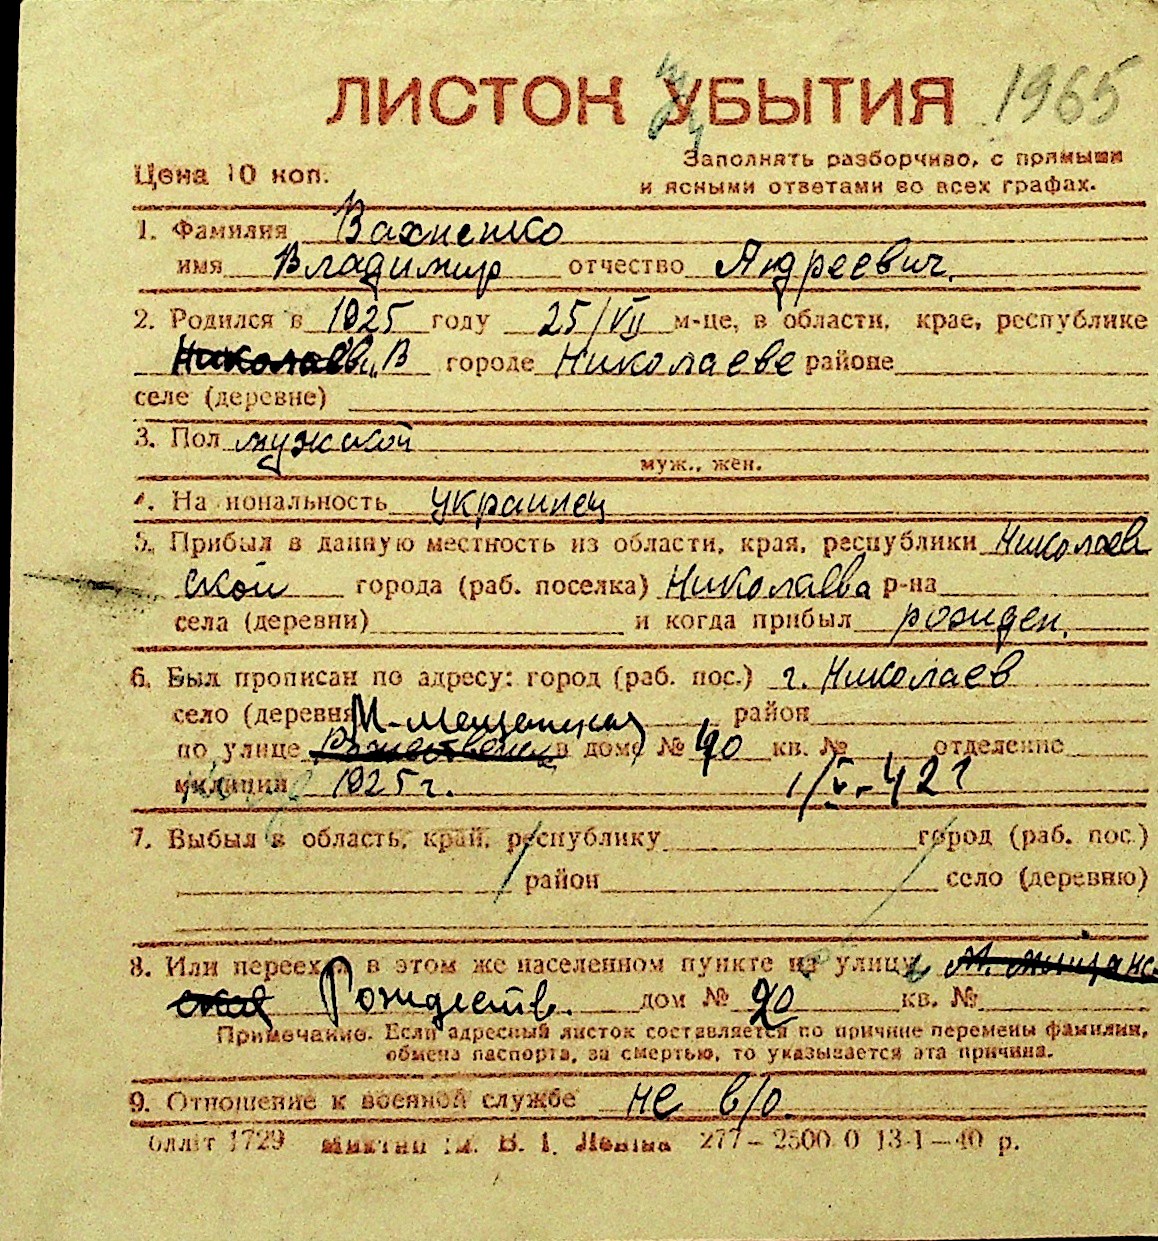 ЛИСТОК УБЫТИЯ 1965
Цена 10 коп.
Заполнять разборчиво, с прямыми
и ясными ответами во всех графах.
1. Фамилия Вахненко
имя Владимир отчество Андреевич.
2. Родился в 1925 году 25/VII м-це, в области, крае, республике
Николаев В городе Николаеве районе
селе (деревне)
3. Пол мужской
муж., жен.
4. На иональность украинец
5. Прибыл в данную местность из области, края, республики Николаев
ской города (раб. поселка) Николаева р-на
села (деревни) и когда прибыл рожден.
6. Был прописан по адресу: город (раб. пос.) г. Николаев
село (деревня М-Мещанская район
по улице в доме № 40 кв. № отделение
милиции 1925 г. 1/V-421
7. Выбыл в область, край, республику город (раб. пос.)
район село (деревню)
8. Или переехал в этом же населенном пункте на улицу
Рождеств. дом № 20 кв. №
Примечание. Если адресный листок составляется по причине перемены фамилии,
обмена паспорта, за смертью, то указывается эта причина.
9. Отношение к военной службе не в/о.
1729 В. І. Леніна 277–2500 0 13-1–40 р.